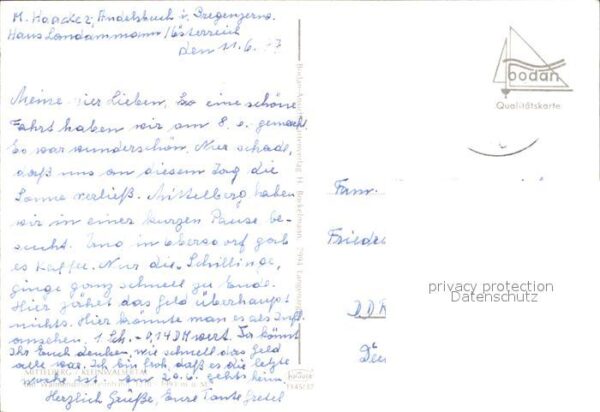 M. Haacker, Andelsbuch i. Bregenzerw.
Haus Landammann/Österreich
den 11.6.77
Meine vier Lieben, So eine schöne
Fahrt haben wir am 8. 6. gemacht.
Es war wunderschön. Nur schade,
daß uns an diesem Tag die
Sonne verließ. Mittelberg haben
wir in einer kurzen Pause be-
sucht. Und in Obersdorf gab
es Kaffee. Nur die Schillinge,
ginge ganz schnell zu Ende.
Hier jähet das Geld überhaupt
nichts. Hier könnte man es als
ansehen. 1 Sch. - 0,14 DM wert. Ihr könnt
Ihr Euch denken, wie schnell das Geld
alle war. Ich bin froh, daß es die letzte
Woche ist. Am 20.6. gehts heim.
Herzlich Grüße, Eure Tante Gretel
MITTELBERG KLEINWALSERTAL
bodan
Qualitätskarte
Fam.
Frieder
DDR
privacy protection
Datenschutz